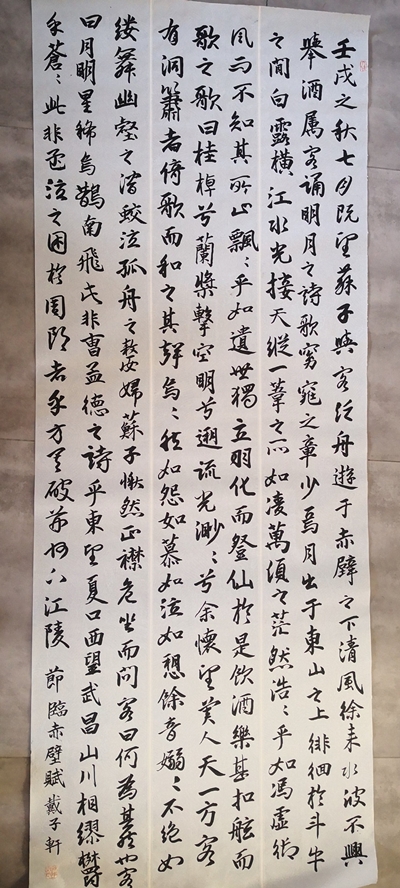 壬戌之秋七月既望蘇子與客泛舟遊于赤壁之下清風徐来水波不興
舉酒属客誦明月之詩歌窈窕之章少焉月出于東山之上徘徊於斗牛
之間白露橫江水光接天縱一葦之所如凌萬頃之茫然浩〻乎如馮虛御
風而不知其所止飄〻乎如遺世獨立羽化而登仙於是飲酒樂甚扣舷而
歌之歌曰桂棹兮蘭槳擊空明兮遡流光渺〻兮余懷望美人天一方客
有洞簫者倚歌而和之其聲烏〻然如怨如慕如泣如愬餘音嫋〻不絕如
縷舞幽壑之潜蛟泣孤舟之嫠婦蘇子愀然正襟危坐而問客曰何為其然也客
曰月明星稀烏鵲南飛此非曹孟德之詩乎東望夏口西望武昌山川相繆鬱
乎蒼〻此非孟德之困於周郎者乎方其破荊州下江陵 節臨赤壁賦戴子軒